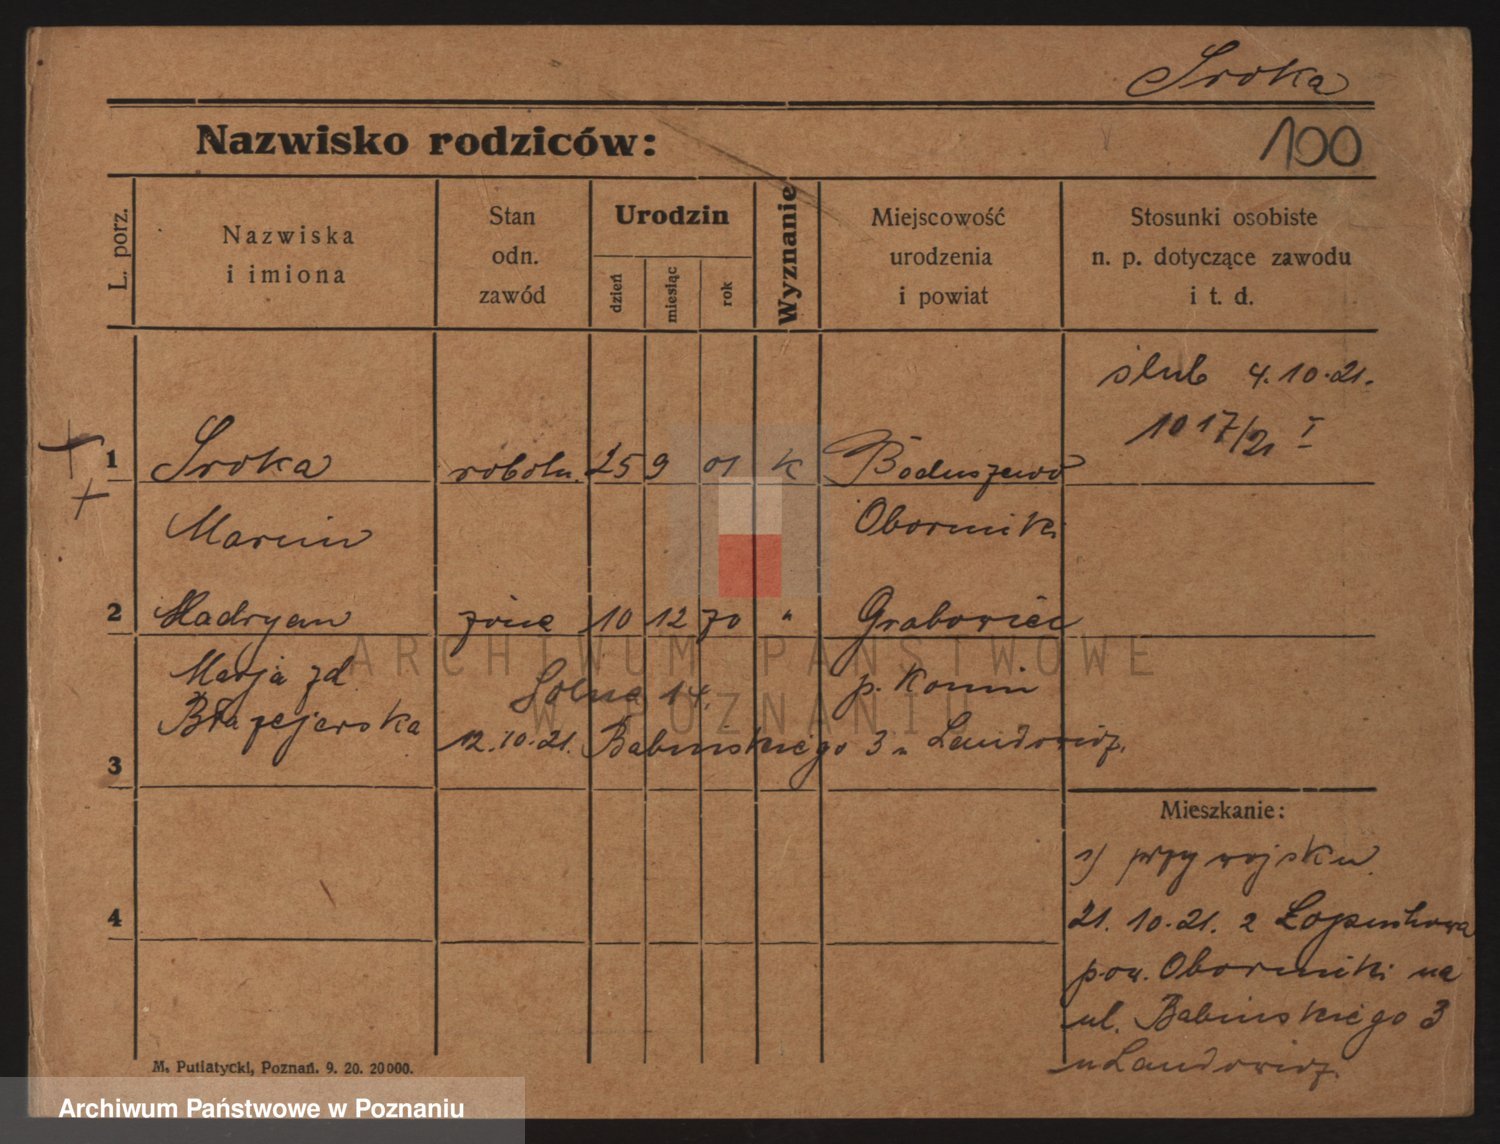 Sroka
Nazwisko rodziców:
100
L. porz.
Nazwiska
i imiona
Stan
odn.
zawód
Urodzin
dzień
miesiąc
rok
Wyznanie
Miejscowość
urodzenia
i powiat
Stosunki osobiste
n. p. dotyczące zawodu
i t. d.
ślub 4.10.21.
1017/21 I
1 Sroka robotn. 25 9 01 k Boduszewo
Marcin Oborniki
2 Hadryan żonę 10 12 70 " Grabowiec
Marja zd. Solna 14. p. Konin
Błażejewska
12.10.21. Babińskiego 3 u Landowicz.
3
Mieszkanie:
1) przy wojsku
21.10.21. z Łopuchowa
pow. Oborniki na
ul. Babińskiego 3
u Landowicz.
4
M. Putiatycki, Poznań. 9. 20. 20000.
ARCHIWUM PAŃSTWOWE
W POZNANIU
Archiwum Państwowe w Poznaniu